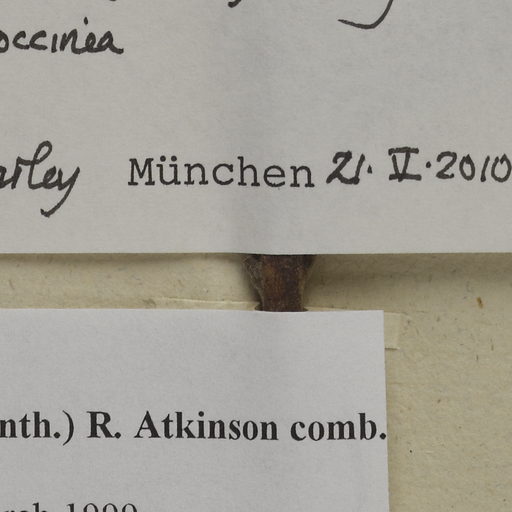 occinea
arley München 21. VI. 2010
nth.) R. Atkinson comb.
rch 1999